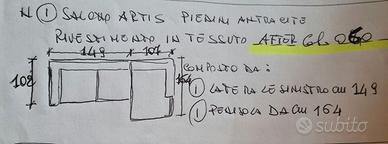 N ① SALONO ARTIS PIEDINI ANTRACITE
RIVESTIMENTO IN TESSUTO AFTER
149 107
102 164
COMPOSTO DA:
① LATERALE SINISTRO cm 149
① PENISOLA DA cm 164
subito